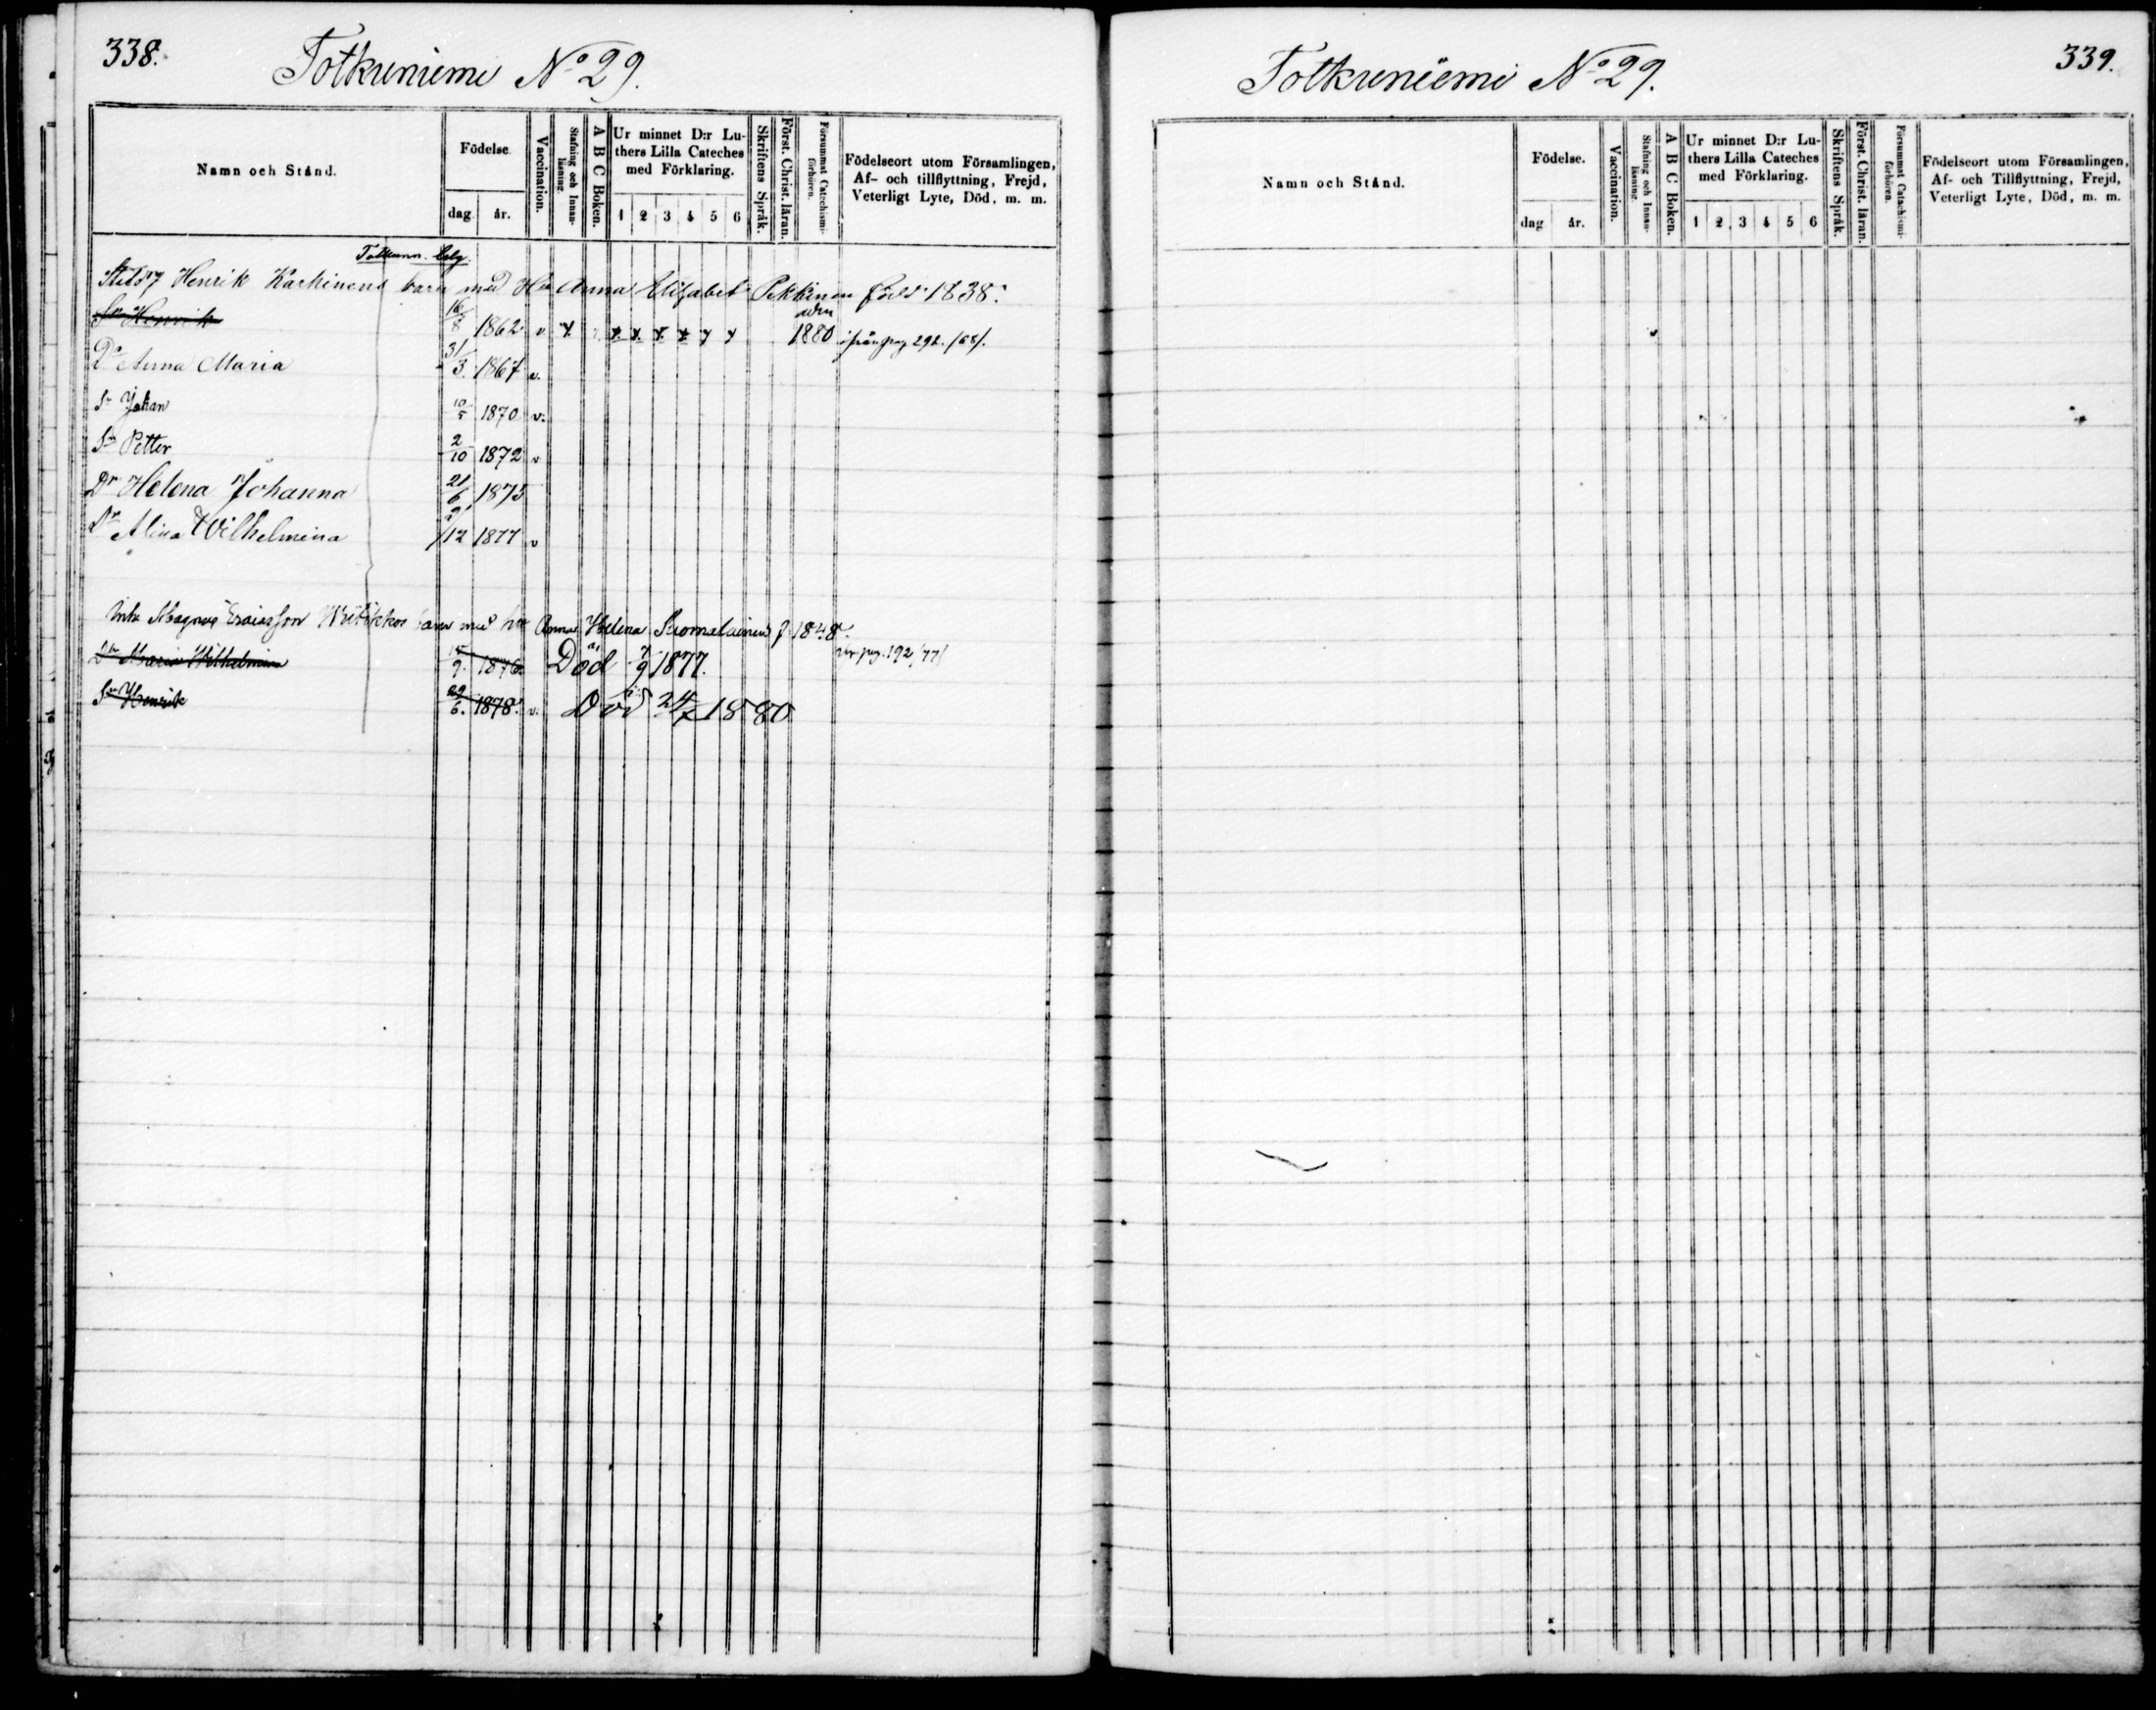 338.
Totkuniemi No 29.
Namn och Stånd.
Födelse.
dag
år.
Vaccination.
Stafning och Innanläsning.
A B C Boken.
Ur minnet D:r Luthers Lilla Cateches med Förklaring.
1 2 3 4 5 6
Skriftens Språk.
Först. Christ. läran.
Försummat Catechismiförhören.
Födelseort utom Församlingen,
Af- och tillflyttning, Frejd,
Veterligt Lyte, Död, m. m.
Henrik Karhinens barn med Hu Anna Elisabet Pekkinen född 1838.
Sn Henrik 16/8 1862 v x x x x x y y 1880 ifrån pag 292. /68/.
Dr Anna Maria 31/3. 1867 v.
Sn Johan 10/5 1870 v.
Sn Petter 2/10 1872 v
Dr Helena Johanna 21/6 1875
Dr Alina Wilhelmina 29/12 1877 v
Magnus Ericsson barn med hu Anna Helena f. 1848.
Dr Maria Wilhelmina 15/9. 1876 Död 7/9 1877. pag. 192/77/
Sn Henrik 29/6. 1878. v. Död 24/7 1880
339.
Totkuniemi No 29.
Namn och Stånd.
Födelse.
dag
år.
Vaccination.
Stafning och Innanläsning.
A B C Boken.
Ur minnet D:r Luthers Lilla Cateches med Förklaring.
1 2 3 4 5 6
Skriftens Språk.
Först. Christ. läran.
Försummat Catechismiförhören.
Födelseort utom Församlingen,
Af- och Tillflyttning, Frejd,
Veterligt Lyte, Död, m. m.